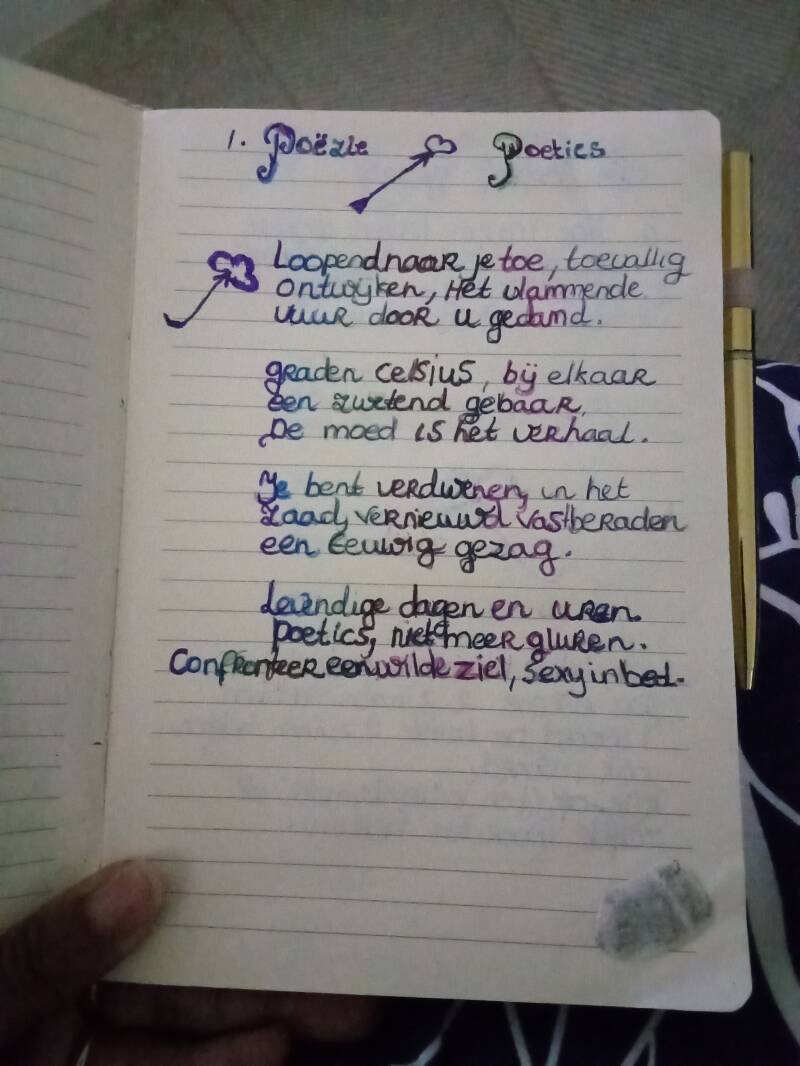 1. Poëzie Poetics
Loopend naar je toe, toevallig
ontwijken, Het vlammende
vuur door u gedamd.
graden celsius, bij elkaar
een zuetend gebaar,
De moed is het verhaal.
Je bent verdwenen, in het
zaad, vernieuwd vastberaden
een eeuwig gezag.
Levendige dagen en uren.
Poetics, niet meer gluren.
Confronteer een wilde ziel, sexy in bed.